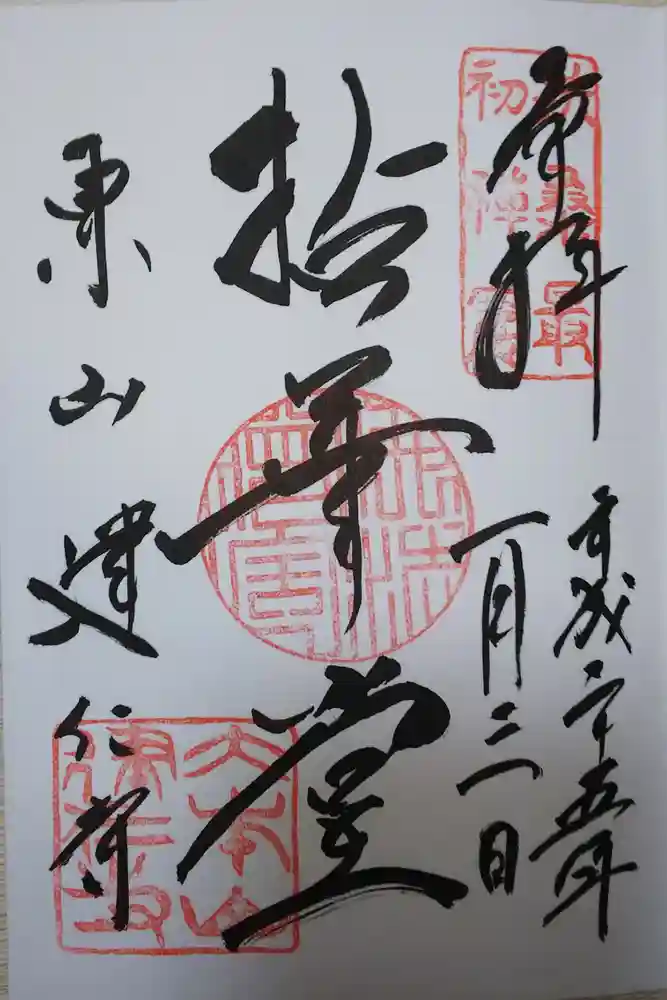 奉拝
扶桑最
初禅窟
平成二十五年
一月三日
拈華堂
東山建仁寺
大本山
建仁寺